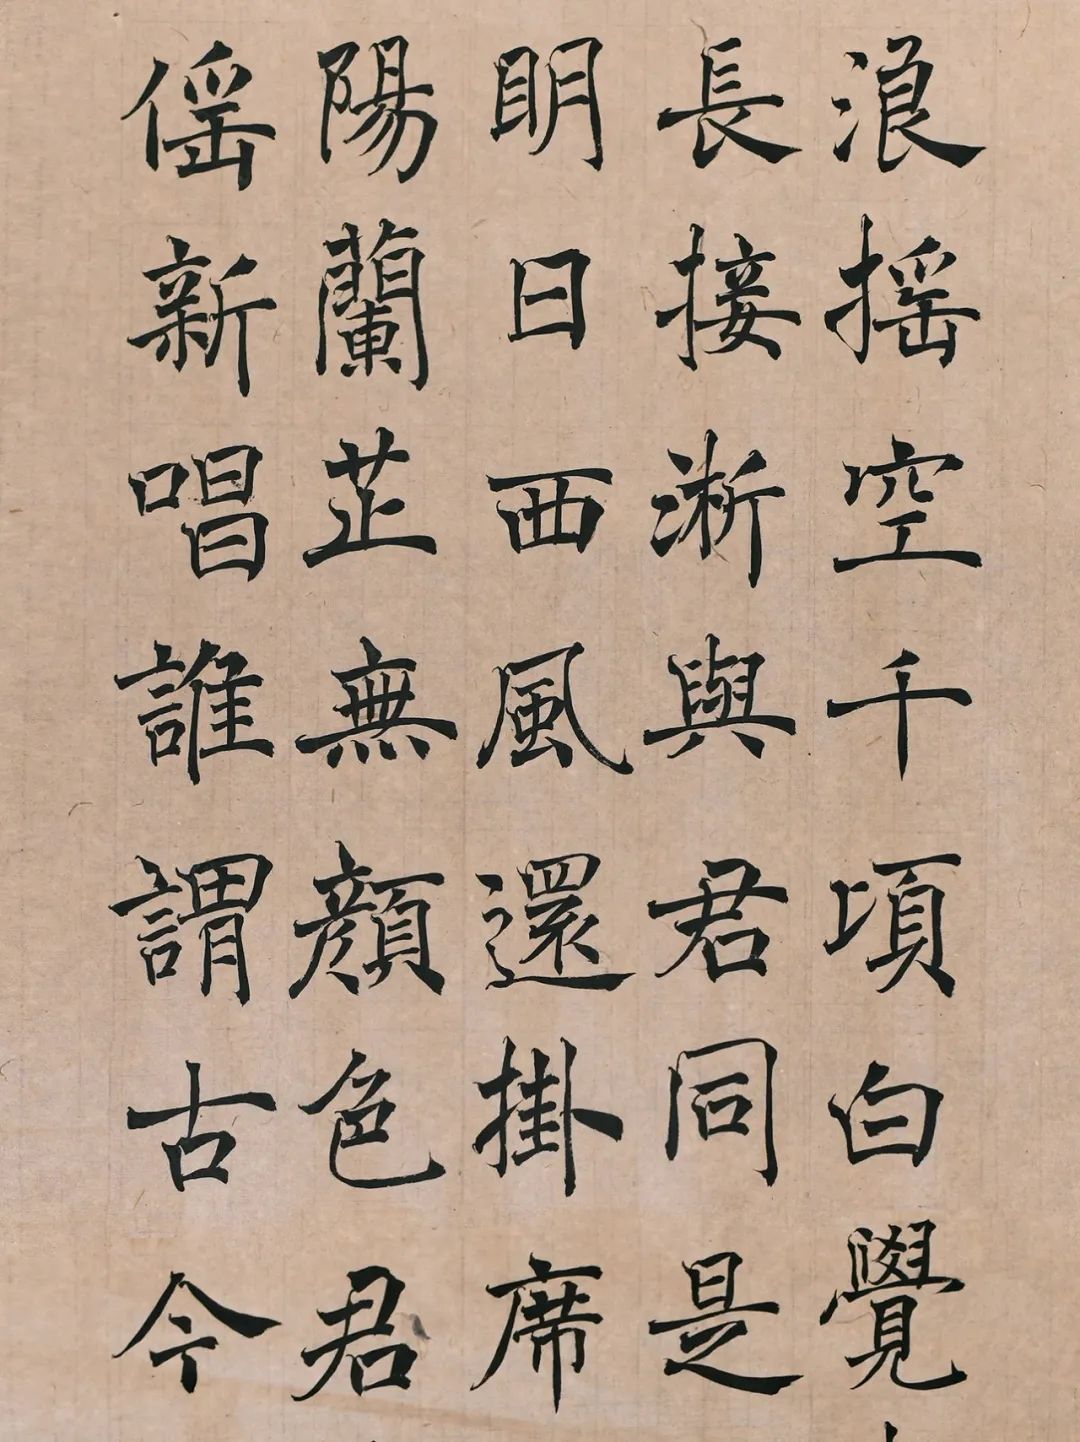 浪摇空千頃白覺
長接淅與君同是
明日西風還掛席
陽蘭芷無顔色君
傜新唱誰謂古今